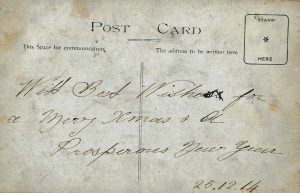 POST CARD
This Space for communication.
The address to be written here
STAMP
HERE
With Best Wishes for
a Merry Xmas & A
Prosperous New Year
25.12.14